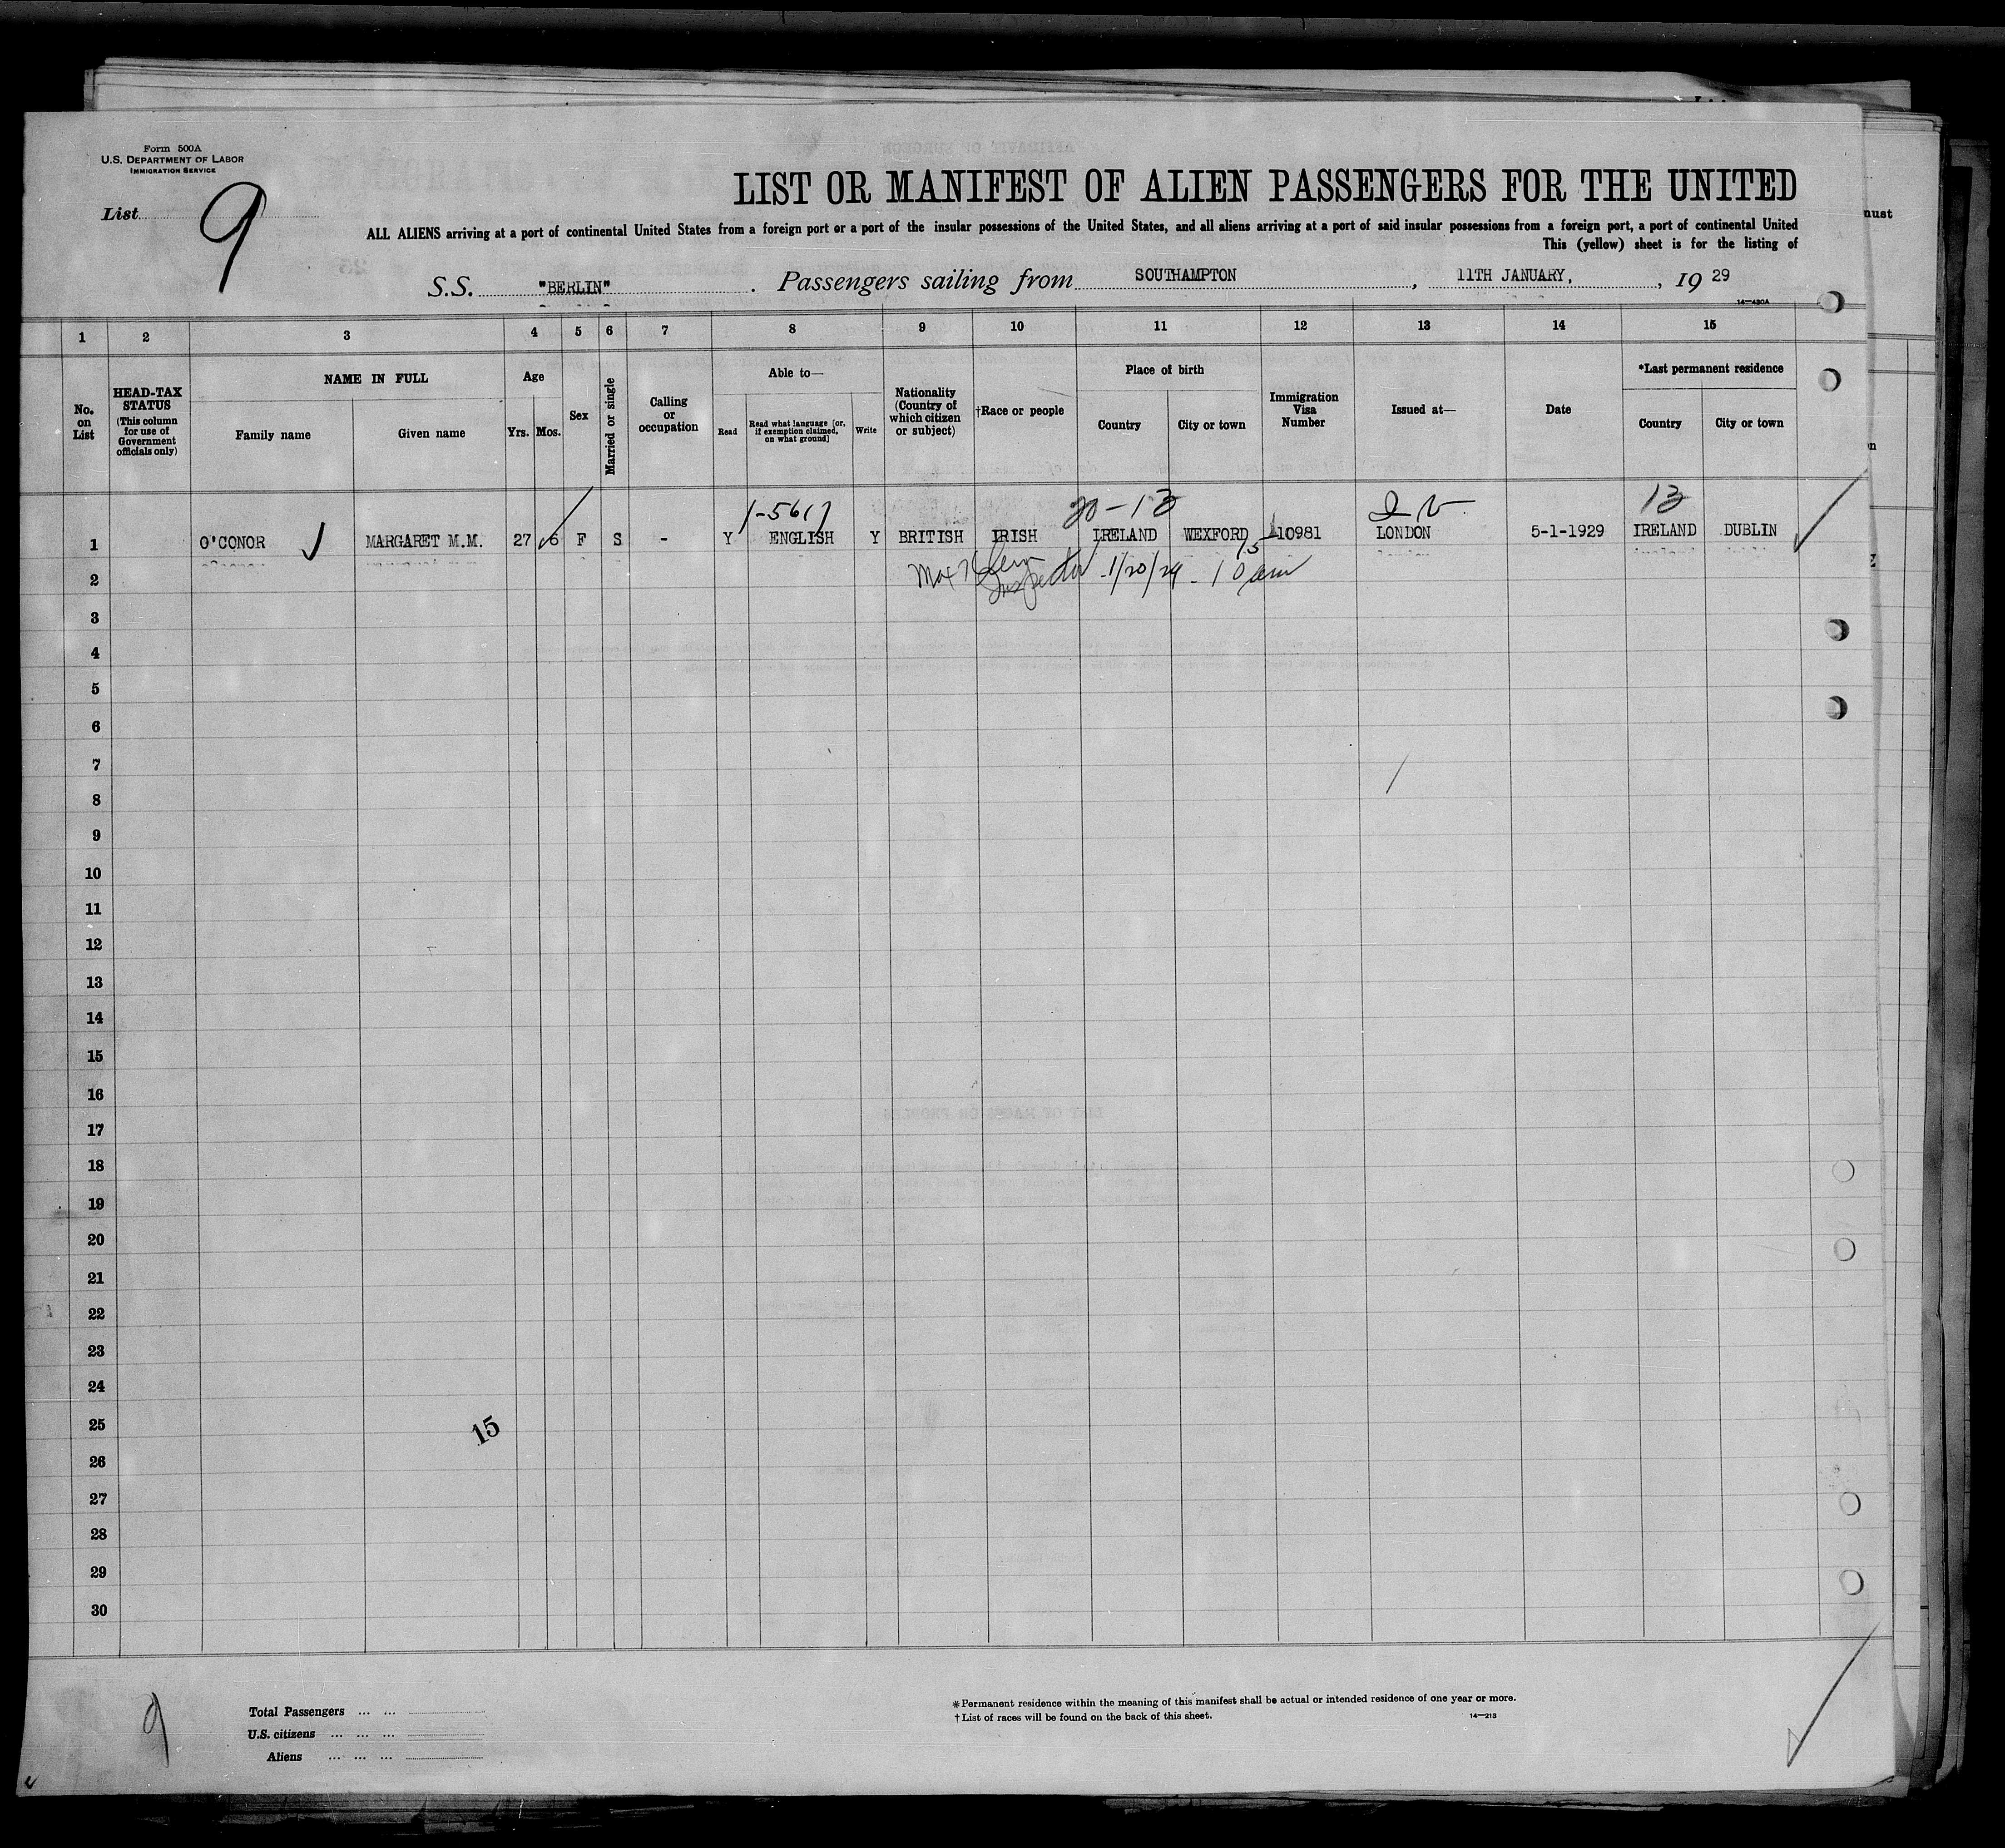 Form 500A
U.S. DEPARTMENT OF LABOR
IMMIGRATION SERVICE
List 9
LIST OR MANIFEST OF ALIEN PASSENGERS FOR THE UNITED
ALL ALIENS arriving at a port of continental United States from a foreign port or a port of the insular possessions of the United States, and all aliens arriving at a port of said insular possessions from a foreign port, a port of continental United
This (yellow) sheet is for the listing of
S.S. "BERLIN". Passengers sailing from SOUTHAMPTON, 11TH JANUARY, , 19 29
14—430A
1 2 3 4 5 6 7 8 9 10 11 12 13 14 15
No. on List
HEAD-TAX STATUS (This column for use of Government officials only)
NAME IN FULL
Family name
Given name
Age
Yrs.
Mos.
Sex
Married or single
Calling or occupation
Able to—
Read
Read what language (or, if exemption claimed, on what ground)
Write
Nationality (Country of which citizen or subject)
†Race or people
Place of birth
Country
City or town
Immigration Visa Number
Issued at—
Date
*Last permanent residence
Country
City or town
1-5617 20-13 13
1 O'CONOR MARGARET M.M. 27 6 F S - Y ENGLISH Y BRITISH IRISH IRELAND WEXFORD 10981 LONDON 5-1-1929 IRELAND DUBLIN
2 Max Inspector 1/20/29 - 10 15 am
3
4
5
6
7
8
9
10
11
12
13
14
15
16
17
18
19
20
21
22
23
24
25
15
26
27
28
29
30
9
Total Passengers ... ...
U.S. citizens ... ... ...
Aliens ... ... ...
*Permanent residence within the meaning of this manifest shall be actual or intended residence of one year or more.
†List of races will be found on the back of this sheet.
14—213